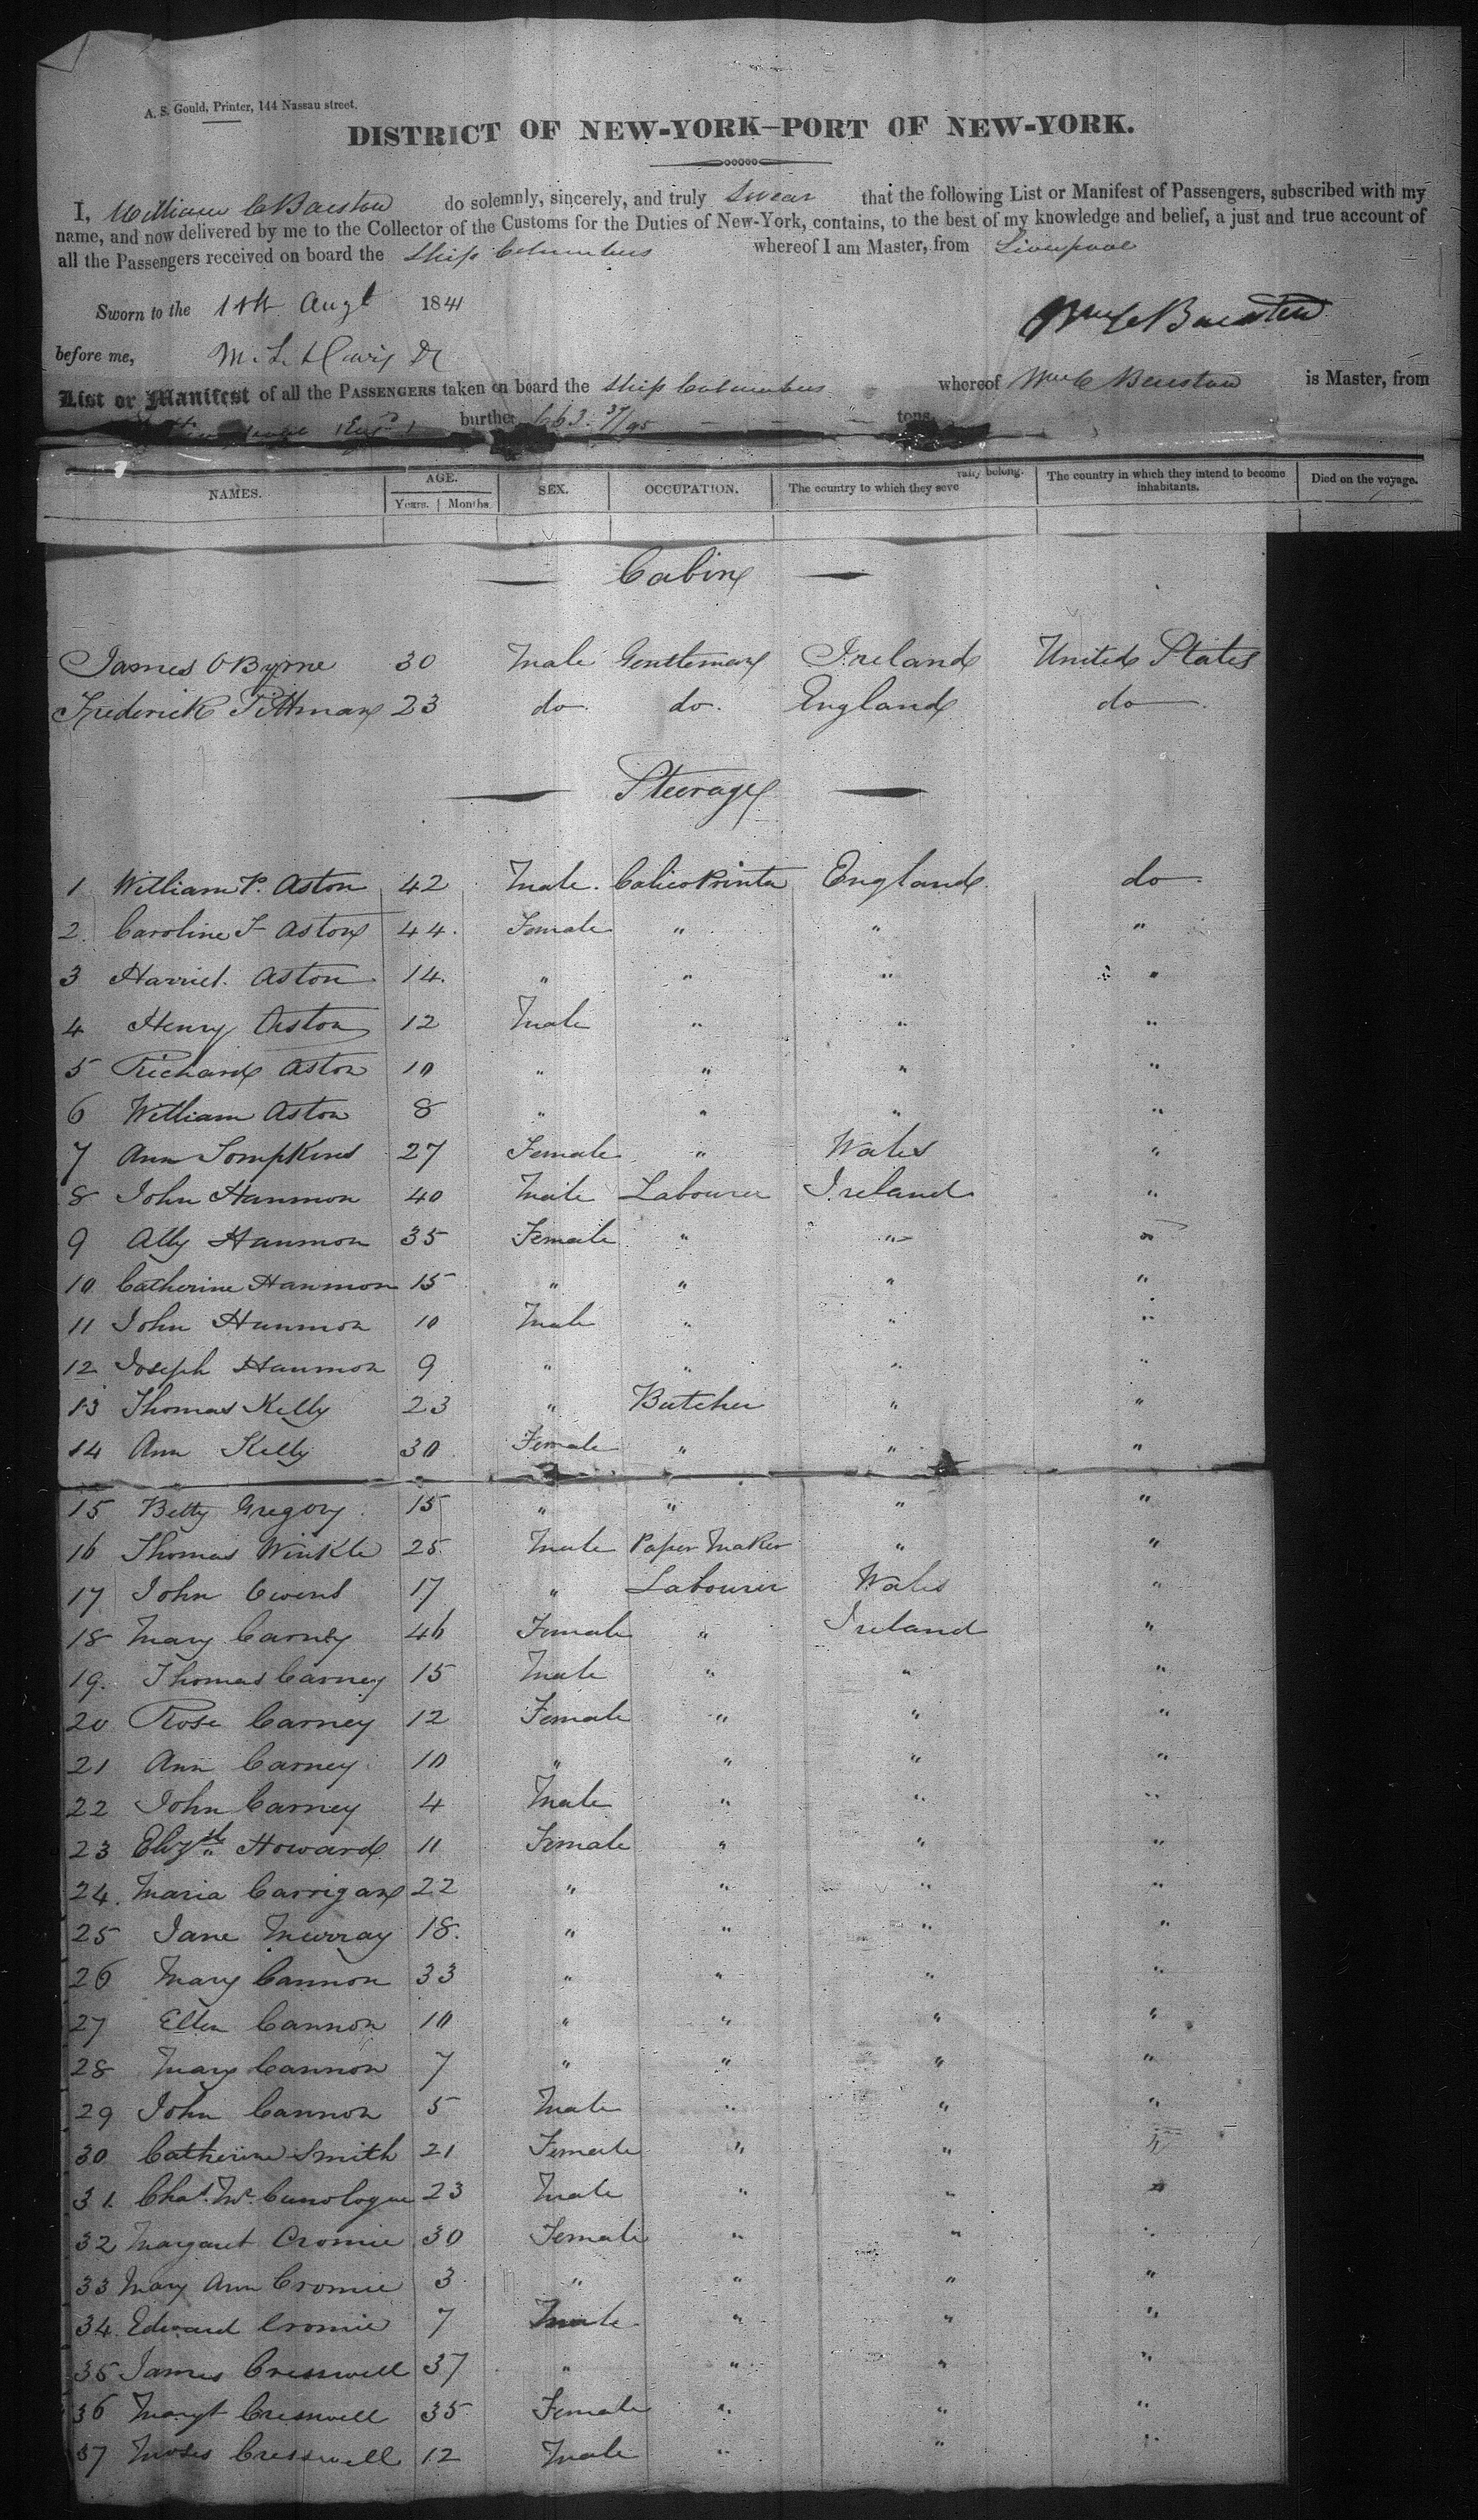 A. S. Gould, Printer, 144 Nassau street.
DISTRICT OF NEW-YORK—PORT OF NEW-YORK.
I, William C Barstow do solemnly, sincerely, and truly swear that the following List or Manifest of Passengers, subscribed with my
name, and now delivered by me to the Collector of the Customs for the Duties of New-York, contains, to the best of my knowledge and belief, a just and true account of
all the Passengers received on board the Ship Columbus whereof I am Master, from Liverpool
Sworn to the Augt 1841 Wm C Barstow
before me, M. L. Davis
List or Manifest of all the PASSENGERS taken on board the Ship Columbus whereof Wm C Barstow is Master, from
burthen 663 37/95 tons
NAMES. AGE. Years. Months. SEX. OCCUPATION. The country to which they severally belong. The country in which they intend to become inhabitants. Died on the voyage.
Cabin
James O Byrne 30 Male Gentleman Ireland United States
Frederick Pittman 23 do do. England do
Steerage
1 William P. Aston 42 Male Calico Printer England do
2 Caroline F Aston 44 Female " " "
3 Harriet Aston 14 " " " "
4 Henry Aston 12 Male " " "
5 Richard Aston 10 " " " "
6 William Aston 8 " " " "
7 Ann Tompkins 27 Female " Wales "
8 John Hanmon 40 Male Labourer Ireland "
9 Ally Hanmon 35 Female " " "
10 Catherine Hanmon 15 " " " "
11 John Hanmon 10 Male " " "
12 Joseph Hanmon 9 " " " "
13 Thomas Kelly 23 " Butcher " "
14 Ann Kelly 30 Female " " "
15 Betty Gregory 15 " " " "
16 Thomas Winkle 25 Male Paper Maker " "
17 John Owens 17 " Labourer Wales "
18 Mary Carney 46 Female " Ireland "
19. Thomas Carney 15 Male " " "
20 Rose Carney 12 Female " " "
21 Ann Carney 10 " " " "
22 John Carney 4 Male " " "
23 Elizth Howard 11 Female " " "
24. Maria Carrigan 22 " " " "
25 Jane Murray 18. " " " "
26 Mary Cannon 33 " " " "
27 Ellen Cannon 10 " " " "
28 Mary Cannon 7 " " " "
29 John Cannon 5 Male " " "
30 Catherine Smith 21 Female " " "
31. Chas. Mc. 23 Male " " "
32 Margaret Cromie 30 Female " " "
33 Mary Ann Cromie 3 " " " "
34. Edward Cromie 7 Male " " "
35 James Cresswell 37 " " " "
36 Margt Cresswell 35 Female " " "
37 Moses Cresswell 12 Male " " "